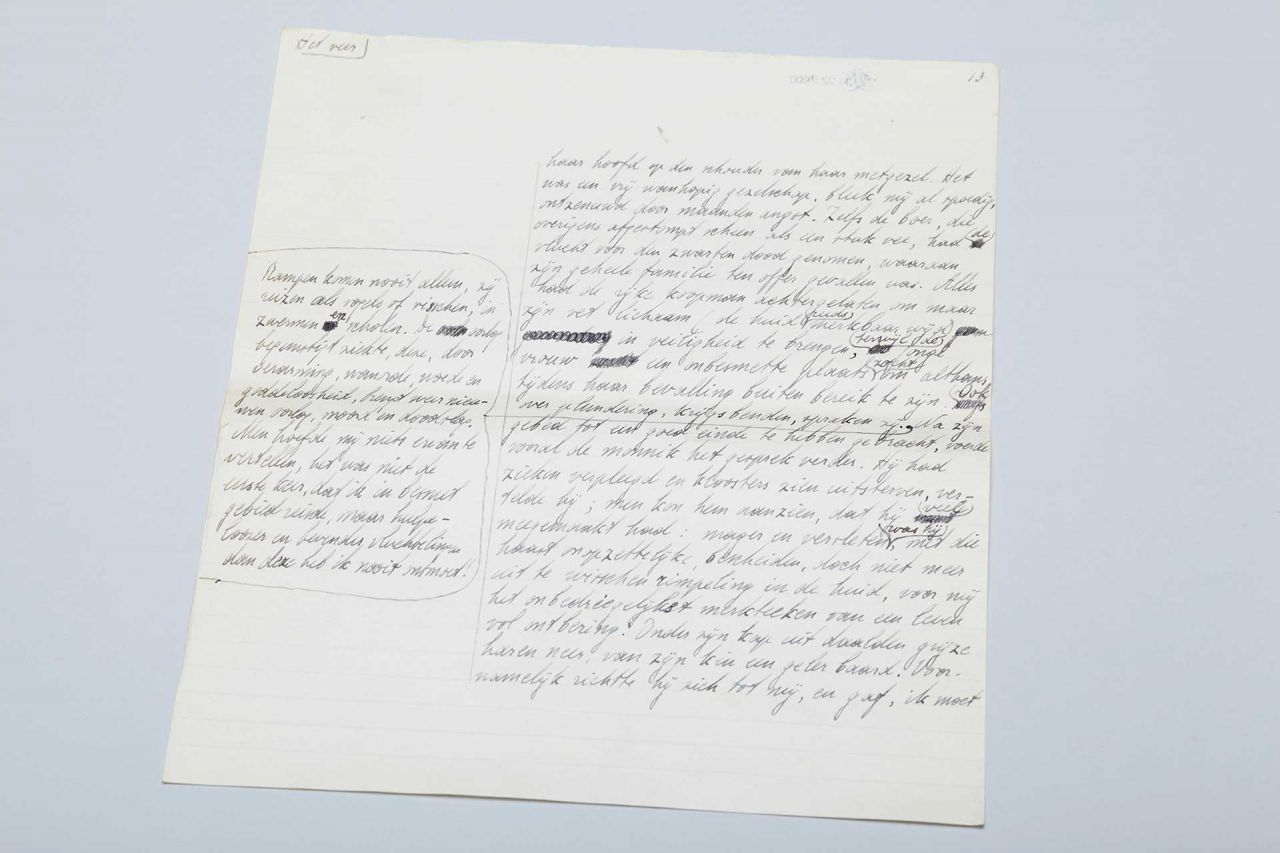 Het veer
13
haar hoofd op den schouder van haar metgezel. Het
was een vrij wanhopig gezelschap, bleek mij al spoedig,
ontzenuwd door maanden angst. Zelfs de boer, die
overigens afgestompt scheen als een stuk vee, had de
vlucht voor den zwarten dood genomen, waaraan
zijn geheele familie ten offer gevallen was. Alles
had de rijke koopman achtergelaten om maar
zijn vet lichaam (de huid reeds merkbaar wijd)
in veiligheid te brengen, terwijl de jonge
vrouw een onbesmette plaats zocht om althans
tijdens haar bevalling buiten bereik te zijn. Ook
over plundering, krijgsbenden, spraken zij. Na zijn
gebed tot een goed einde te hebben gebracht, voerde
vooral de monnik het gesprek verder. Hij had
zieken verpleegd en kloosters zien uitsterven, ver-
telde hij; men kon hem aanzien, dat hij veel
meegemaakt had: mager en versleten was hij, met die
haast onopzettelijke, bescheiden, doch niet meer
uit te wisschen rimpeling in de huid, voor mij
het onbedriegelijkst merkteeken van een leven
vol ontbering. Onder zijn kap uit daalden grijze
haren neer, van zijn kin een geler baard. Voor-
namelijk richtte hij zich tot mij, en gaf, ik moet
Rampen komen nooit alleen, zij
reizen als vogels of visschen, in
zwermen en scholen. De oorlog
begunstigt ziekte, deze, door
verarming, waanzin, woede en
goddeloosheid, brengt weer nieu-
wen oorlog, moord en doodslag.
Men hoefde mij niets ervan te
vertellen, het was niet de
eerste keer, dat ik in besmet
gebied reisde, maar hulpe-
loozer en bevender vluchtelingen
dan deze heb ik nooit ontmoet!